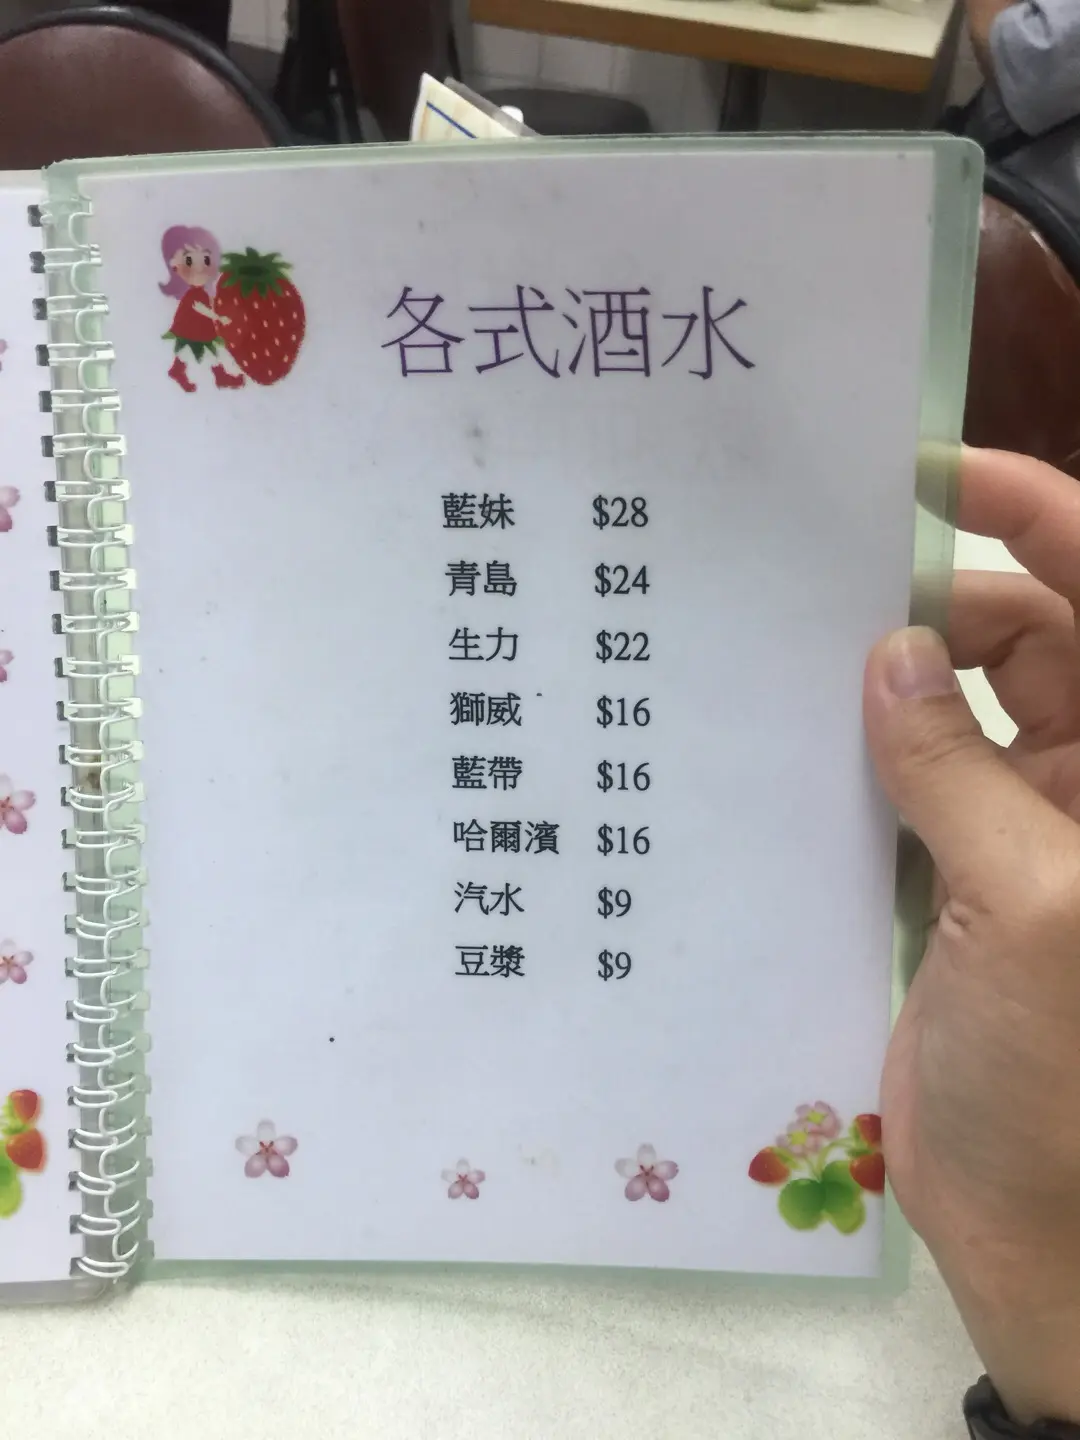 各式酒水
藍妹 $28
青島 $24
生力 $22
獅威 $16
藍帶 $16
哈爾濱 $16
汽水 $9
豆漿 $9